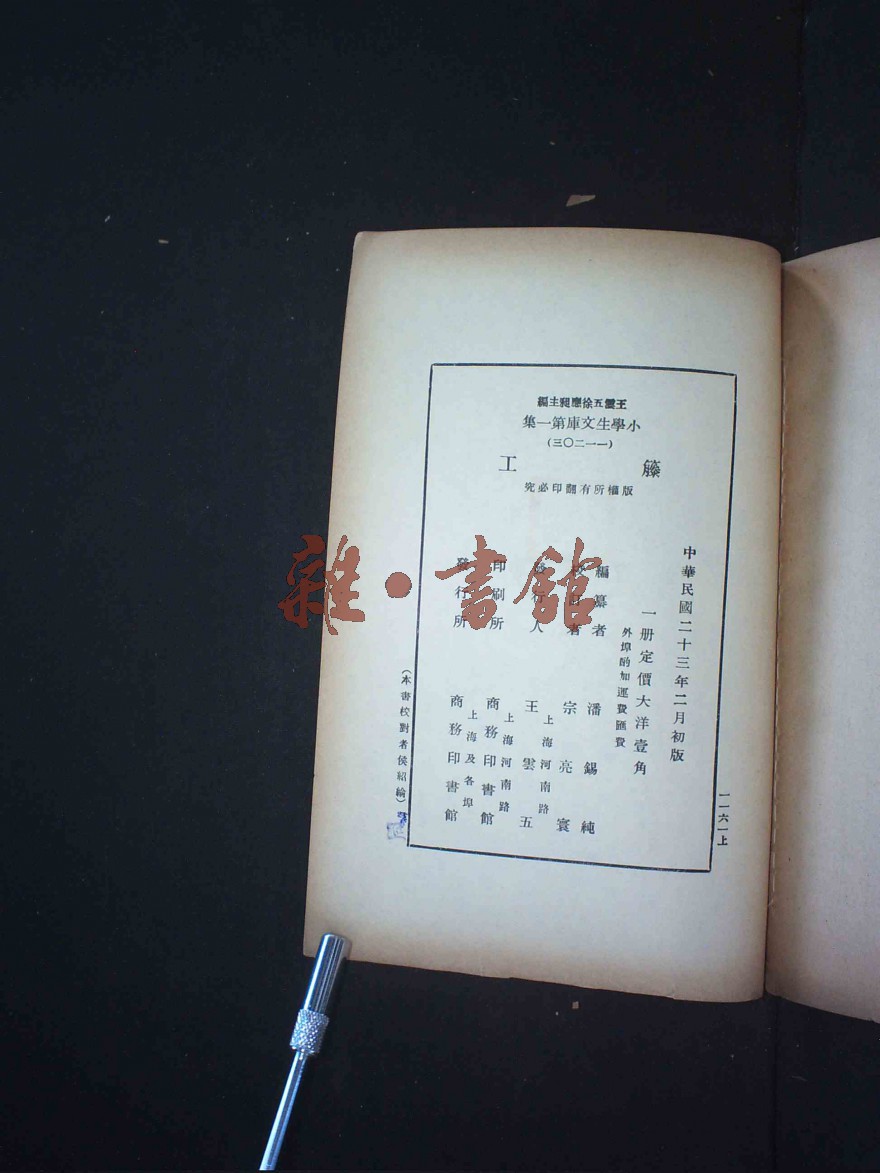 王雲五徐應昶主編
小學生文庫第一集
(一一二〇三)
籐工
版權所有翻印必究
中華民國二十三年二月初版
一册定價大洋壹角
外埠酌加運費匯費
編纂者 潘錫純
校訂者 宗亮寰
發行人 王雲五
上海河南路
印刷所 商務印書館
上海河南路
發行所 商務印書館
上海及各埠
(本書校對者侯紹綸)
一一六一上
雜·書館